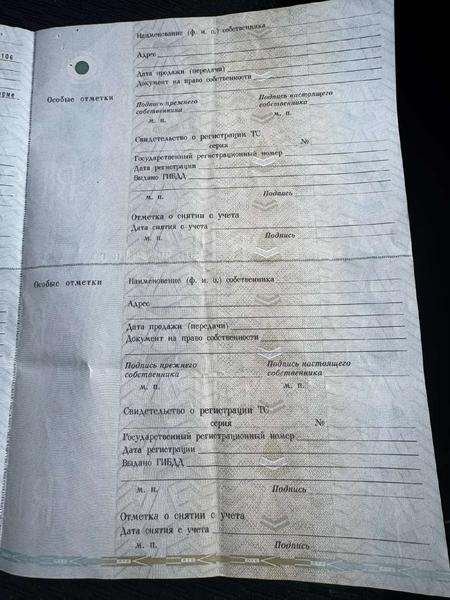 106
Особые отметки
Наименование (ф. и. о.) собственника
Адрес
Дата продажи (передачи)
Документ на право собственности
Подпись прежнего собственника
Подпись настоящего собственника
м. п.
м. п.
Свидетельство о регистрации ТС
серия №
Государственный регистрационный номер
Дата регистрации
Выдано ГИБДД
м. п. Подпись
Отметка о снятии с учета
Дата снятия с учета
м. п. Подпись
Особые отметки
Наименование (ф. и. о.) собственника
Адрес
Дата продажи (передачи)
Документ на право собственности
Подпись прежнего собственника
Подпись настоящего собственника
м. п.
м. п.
Свидетельство о регистрации ТС
серия №
Государственный регистрационный номер
Дата регистрации
Выдано ГИБДД
м. п. Подпись
Отметка о снятии с учета
Дата снятия с учета
м. п. Подпись